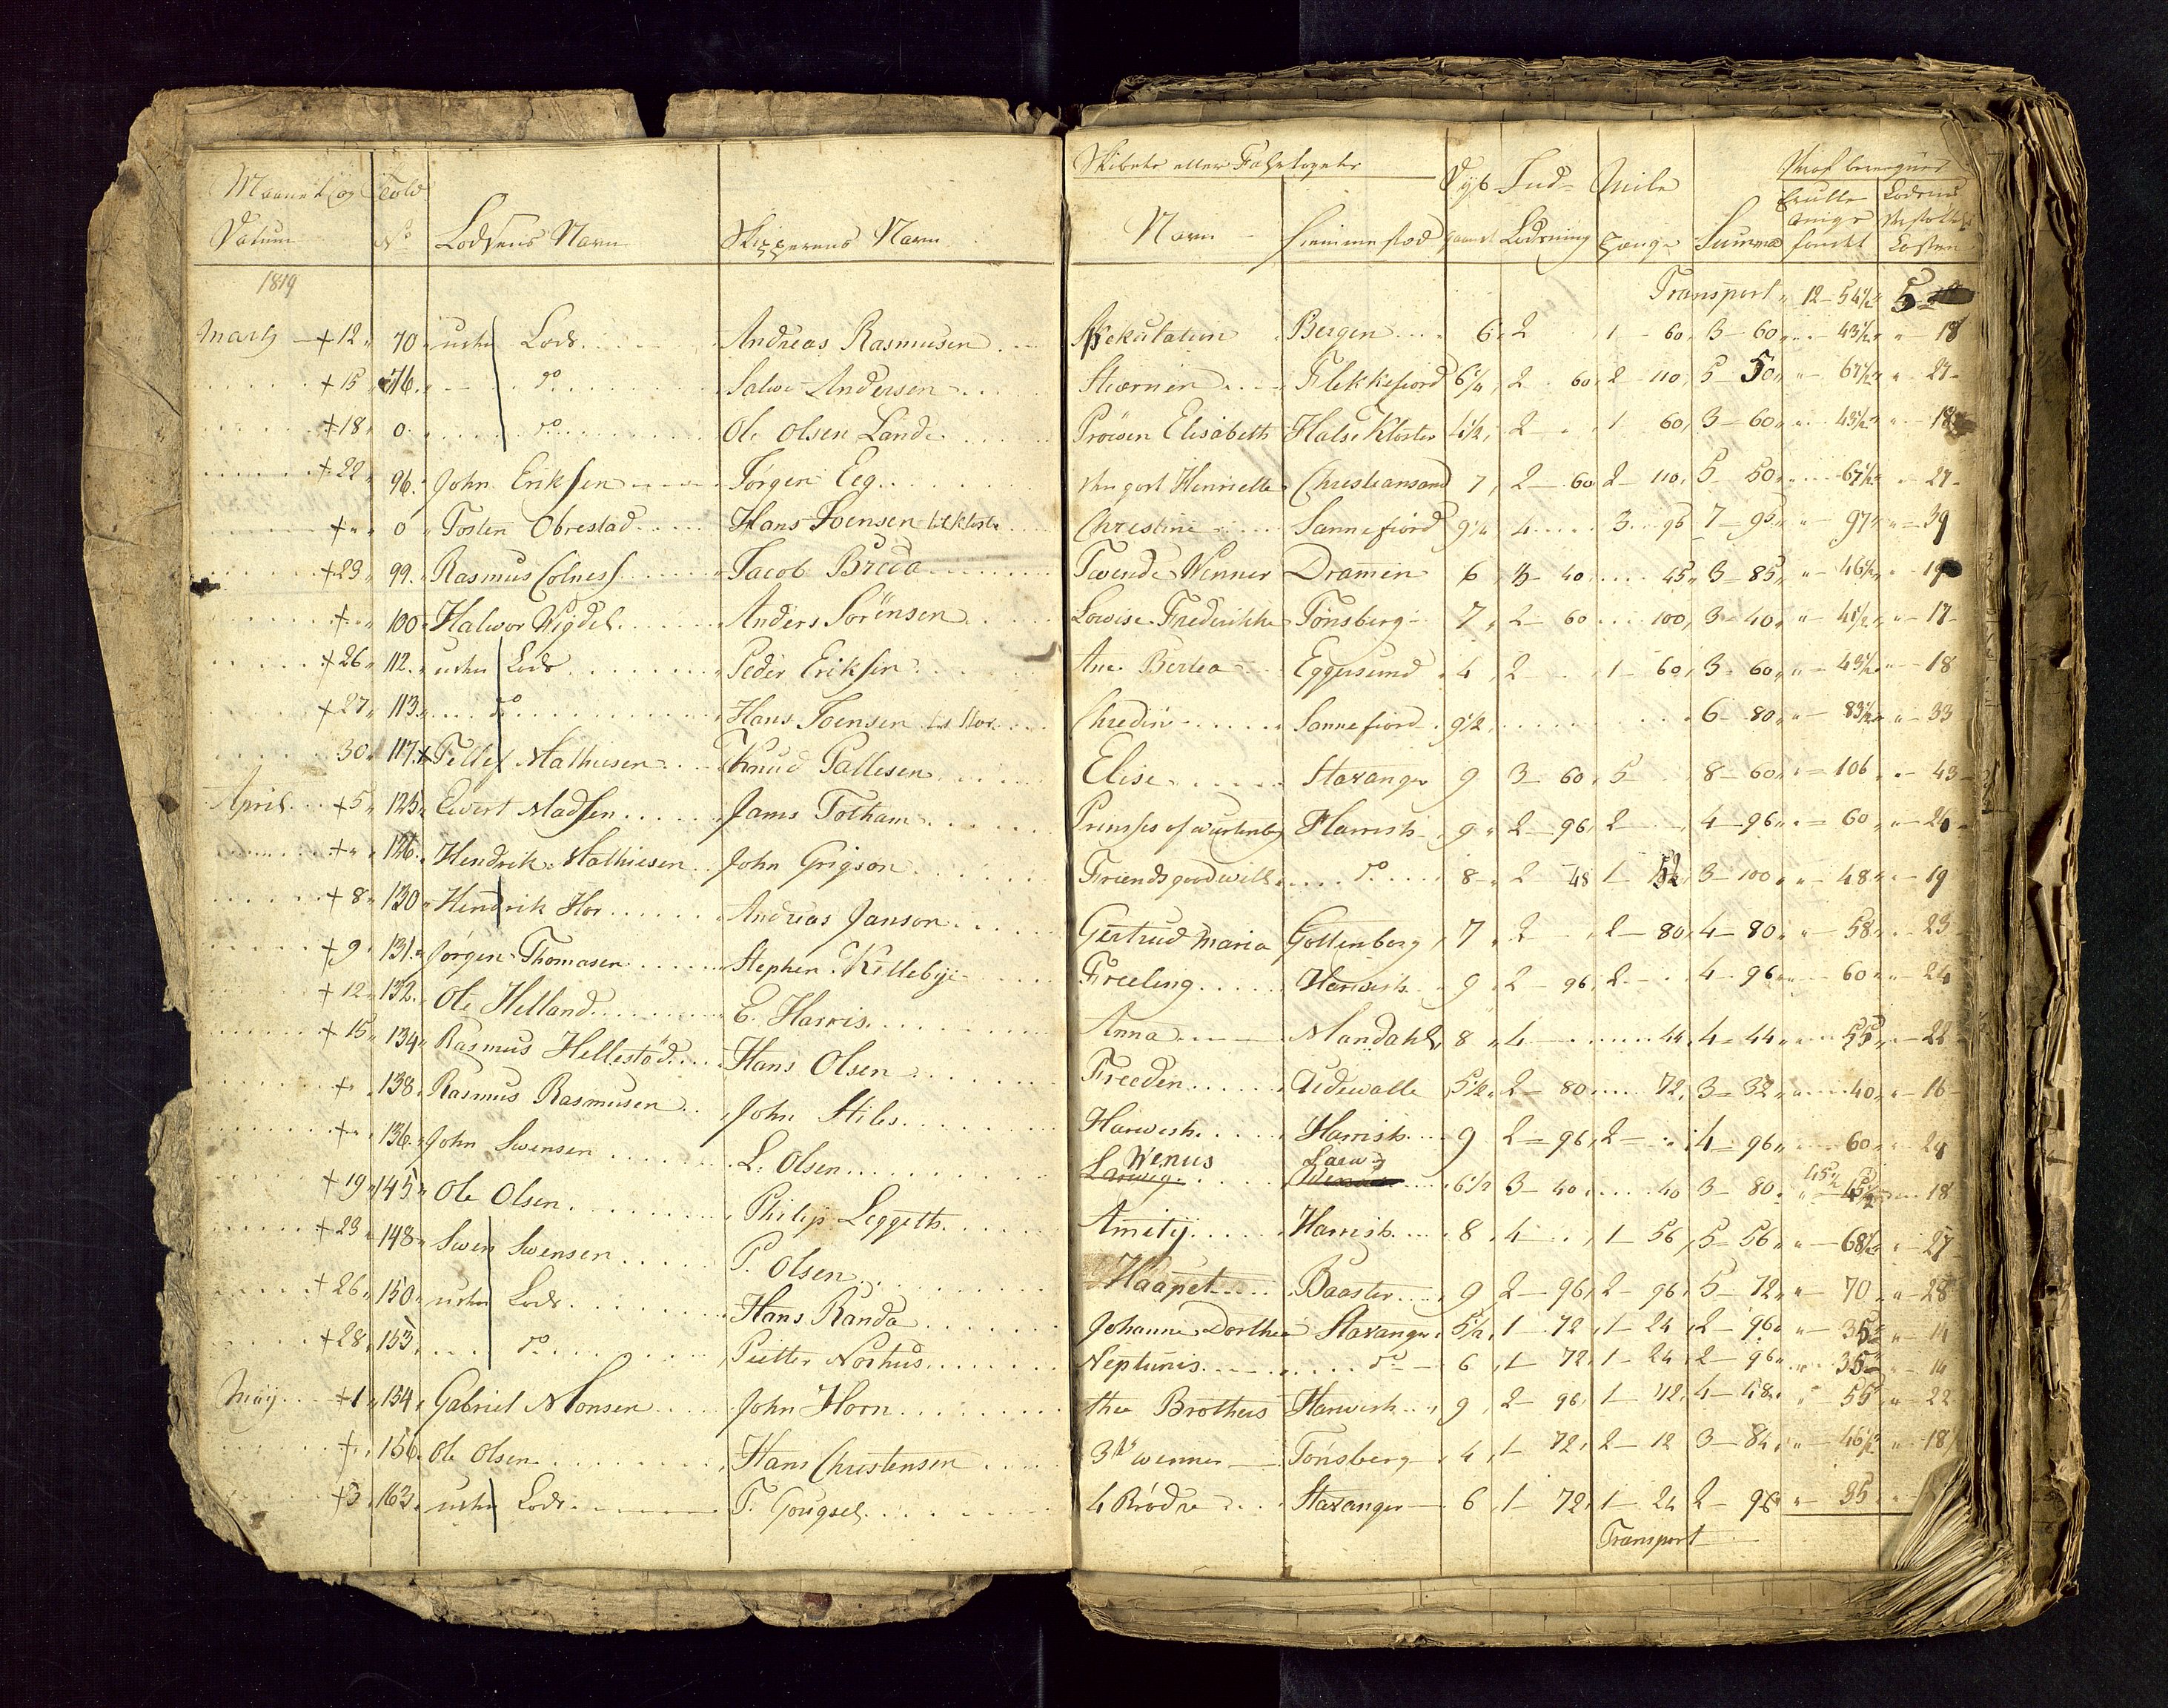 Maanet og Told
Datum No Lodsens Navn Skipperens Navn
1819
Marty + 12 70 Lods Andreas Rasmusen
+ 15 76 do Salve Andersen
+ 18 0 do Ole Olsen Lande
+ 22 96 John Eriksen Jørgen Eeg
+ " 0 Tosten Obrestad Hans Joensen
+ 23 99 Rasmus Colness Jacob Breda
+ " 100 Halvor Wigdel Anders Sorensen
+ 26 112 Lods Peder Eriksen
+ 27 113 do Hans Joensen
30 117 Tellef Mathiesen Knud Pallesen
April + 5 125 Evert Madsen Jams Totham
+ " 126 Hendrik Mathiesen John Grigson
+ 8 130 Hendrik Hor Andreas Janson
+ 9 131 Jørgen Thomasen Stephen Killebye
+ 12 132 Ole Helland E. Harris
+ 15 134 Rasmus Hellestad Hans Olsen
+ 138 Rasmus Rasmusen John Stiles
+ " 136 John Swensen L. Olsen
+ 19 145 Ole Olsen Philip Leggett
+ 23 148 Swen Swensen P. Olsen
+ 26 150 Lods Hans Randa
+ 28 153 do Pietter Norhus
Maij + 1 154 Gabriel Monsen John Horn
+ " 156 Ole Olsen Hans Christensen
+ 3 163 Lods T.
Skibets eller Fahrtøyets
Navn Hiemmestod Dyb Ind Lodsning Mile Penge Summa
Transport 12 - 54½ 5
Spekulation Bergen 6 2 1 - 60 3 - 60 43½ 18
Flekkefiord 6¼ 2 60 2 - 110 5 50 67½ 27
Pröven Elisabeth Halse Kloster 4½ 2 1 60 3 - 60 43½ 18
Henriette Christiansand 7 2 - 60 2 - 110 5 50 67½ 27
Christine Sannefiord 9½ 4 3 96 7 - 96 97 39
Twende Wenner Dramen 6 3 - 40 45 3 - 85 46½ 19
Lowise Fredrikke Tönsberg 7 2 - 60 100 3 - 40 41½ 17
Ane Bertea Eggersund 4 2 1 - 60 3 - 60 43½ 18
Sannefiord 9½ 6 - 80 83½ 33
Elise Stavanger 9 3 - 60 5 8 - 60 106 43
Harrish 9 2 - 96 2 4 - 96 60 24
Friends good will do 8 2 48 1 - 52 3 - 100 48 19
Gertrud Maria Gottenborg 7 2 2 - 80 4 - 80 58 23
Freeling Harwish 9 2 - 96 2 4 - 96 60 24
Anna Mandahl 8 4 44 4 - 44 55 22
Freeden Udewalle 5½ 2 - 80 72 3 - 32 40 16
Harwish Harrish 9 2 - 96 2 4 - 96 60 24
Wenus Larwig
Larwig 6½ 3 - 40 40 3 - 80 45½ 18
Amitij Harrish 8 4 1 - 56 5 - 56 68½ 27
Haapet Baaster 9 2 - 96 2 - 96 5 - 72 70 28
Johanne Dorthea Stavanger 5½ 1 - 72 1 - 24 2 - 96 35 14
Neptunis do 6 1 - 72 1 - 24 2 - 96 35 14
the Brothers Harwish 9 2 - 96 1 - 72 4 - 48 55 22
3de wenner Tönsberg 4 1 - 72 2 - 12 3 - 84 46½ 18
4 Brödre Stavanger 6 1 - 72 1 - 24 2 - 96 35
Transport